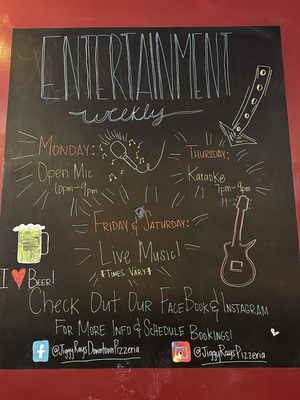 ENTERTAINMENT
weekly
MONDAY:
Open Mic
6pm-9pm
THURSDAY:
Karaoke
7pm-9pm
FRIDAY & SATURDAY:
Live Music!
*TIMES VARY*
I ♥ BEER!
CHECK OUT OUR FACEBOOK & INSTAGRAM
FOR MORE INFO & SCHEDULE BOOKINGS!
@JiggyRaysDowntownPizzeria
@JiggyRaysPizzeria